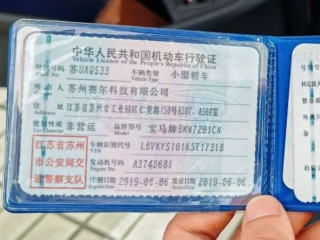 中华人民共和国机动车行驶证
Vehicle License of the People's Republic of China
号牌号码 苏UAQ533 车辆类型 小型轿车
Vehicle Type
所有人 苏州赛尔科技有限公司
住址 江苏省苏州市工业园区仁爱路150号A507、A508室
使用性质 非营运 品牌型号 宝马牌BMW7201CN
江苏省苏州市公安局交通警察支队
车辆识别代号 LBVKY5101KST17318
VIN
发动机号码 A374D681
注册日期 2019-06-06 发证日期 2019-06-06